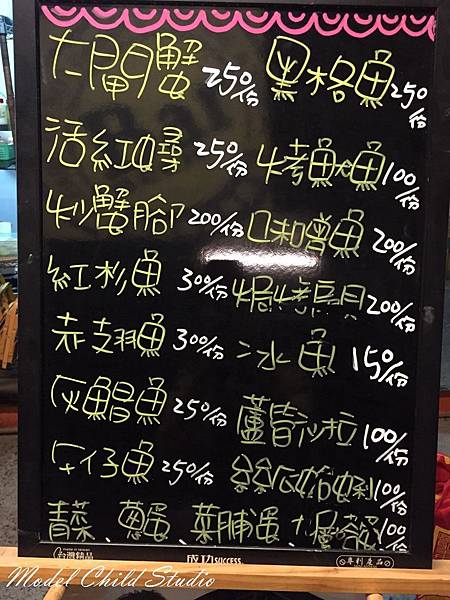 大閘蟹 250/份 黑格魚 250/份
活紅蟳 250/份 烤魷魚 100/份
炒蟹腳 200/份 口味曾魚 200/份
紅杉魚 300/份 焗烤扇貝 200/份
赤翅魚 300/份 冰魚 150/份
灰鯧魚 250/份 蘆筍沙拉 100/份
午仔魚 250/份 絲瓜蛤蜊 100/份
青菜、蔥蛋、菜脯蛋 100/份
台灣精品 成功SUCCESS. 專利產品
Model Child Studio